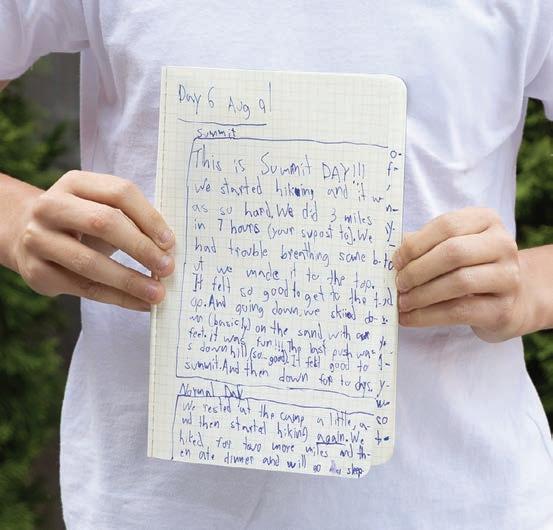 Day 6 Aug 9
Summit
This is Summit DAY!!!
We started hiking and it w
as so hard. We did 3 miles
in 7 hours (your supost to). We
had trouble breathing some b
ut we made it to the top.
It felt so good to get to the t
op. And going down, we skiied do
wn (basicly) on the sand with our
feet. It was fun!!! The best part was
s down hill (so good). I felt good to
summit. And then down for to days.
Normal Day
We rested at the camp a little, a
nd then started hiking again. We
hiked for two more miles and th
en ate dinner and will go sleep
o-
f-
n-
y
to
y-
we
so
te